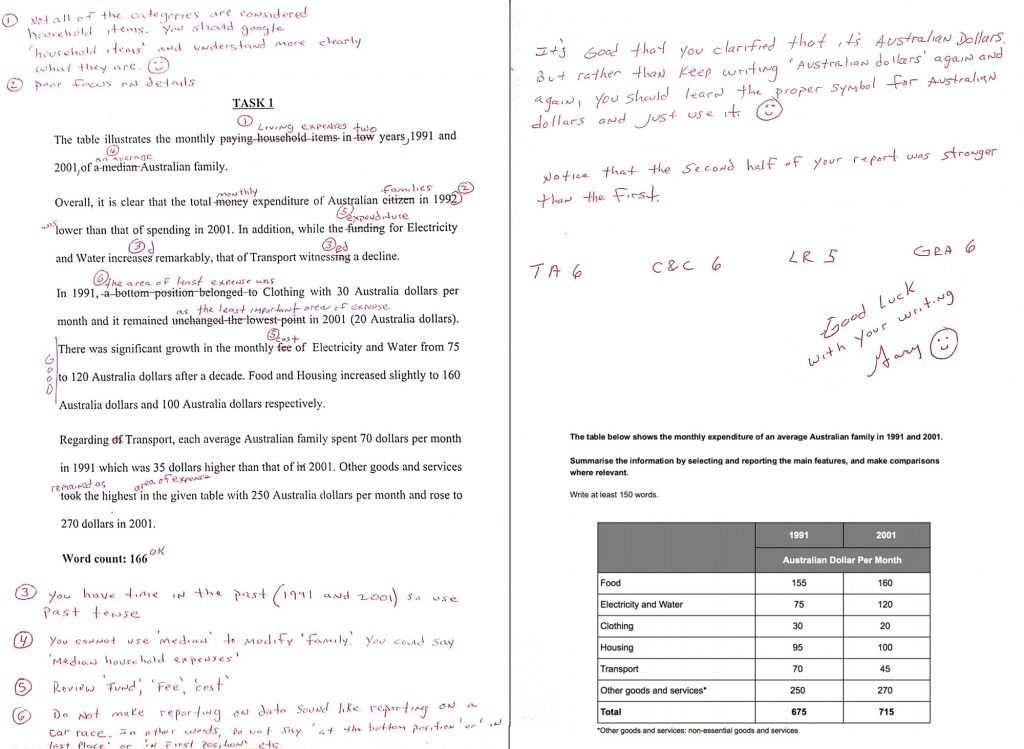 ① Not all of the categories are considered
household items. You should google
'household items' and understand more clearly
what they are.
② poor focus on details
TASK 1
① Living expenses two
The table illustrates the monthly paying household items in tow years, 1991 and
④ an average
2001, of a median Australian family.
monthly families ②
Overall, it is clear that the total money expenditure of Australian citizen in 1992
⑤ expenditure
was lower than that of spending in 2001. In addition, while the funding for Electricity
③ d ③ ed
and Water increases remarkably, that of Transport witnessing a decline.
⑥ the area of least expense was
In 1991, a bottom position belonged to Clothing with 30 Australia dollars per
as the least important area of expense
month and it remained unchanged the lowest point in 2001 (20 Australia dollars).
⑤ cost
There was significant growth in the monthly fee of Electricity and Water from 75
GOOD
to 120 Australia dollars after a decade. Food and Housing increased slightly to 160
Australia dollars and 100 Australia dollars respectively.
Regarding of Transport, each average Australian family spent 70 dollars per month
in 1991 which was 35 dollars higher than that of in 2001. Other goods and services
remained as area of expense
took the highest in the given table with 250 Australia dollars per month and rose to
270 dollars in 2001.
Word count: 166 OK
③ You have time in the past (1991 and 2001) so use
past tense
④ You cannot use 'median' to modify 'family'. You could say
'Median household expenses'
⑤ Review 'Fund', 'Fee', 'cost'
⑥ Do not make reporting on data sound like reporting on a
car race. In other words, Do not say 'at the bottom position' or 'in
last place' or 'in First position' etc.
It's Good that you clarified that it's Australian Dollars.
But rather than keep writing 'Australian dollars' again and
again, you should learn the proper symbol for Australian
dollars and just use it.
Notice that the second half of your report was stronger
than the first.
TA 6 C&C 6 LR 5 GRA 6
Good Luck
with your writing
Gary
The table below shows the monthly expenditure of an average Australian family in 1991 and 2001.
Summarise the information by selecting and reporting the main features, and make comparisons
where relevant.
Write at least 150 words.
1991 2001
Australian Dollar Per Month
Food 155 160
Electricity and Water 75 120
Clothing 30 20
Housing 95 100
Transport 70 45
Other goods and services* 250 270
Total 675 715
*Other goods and services: non-essential goods and services